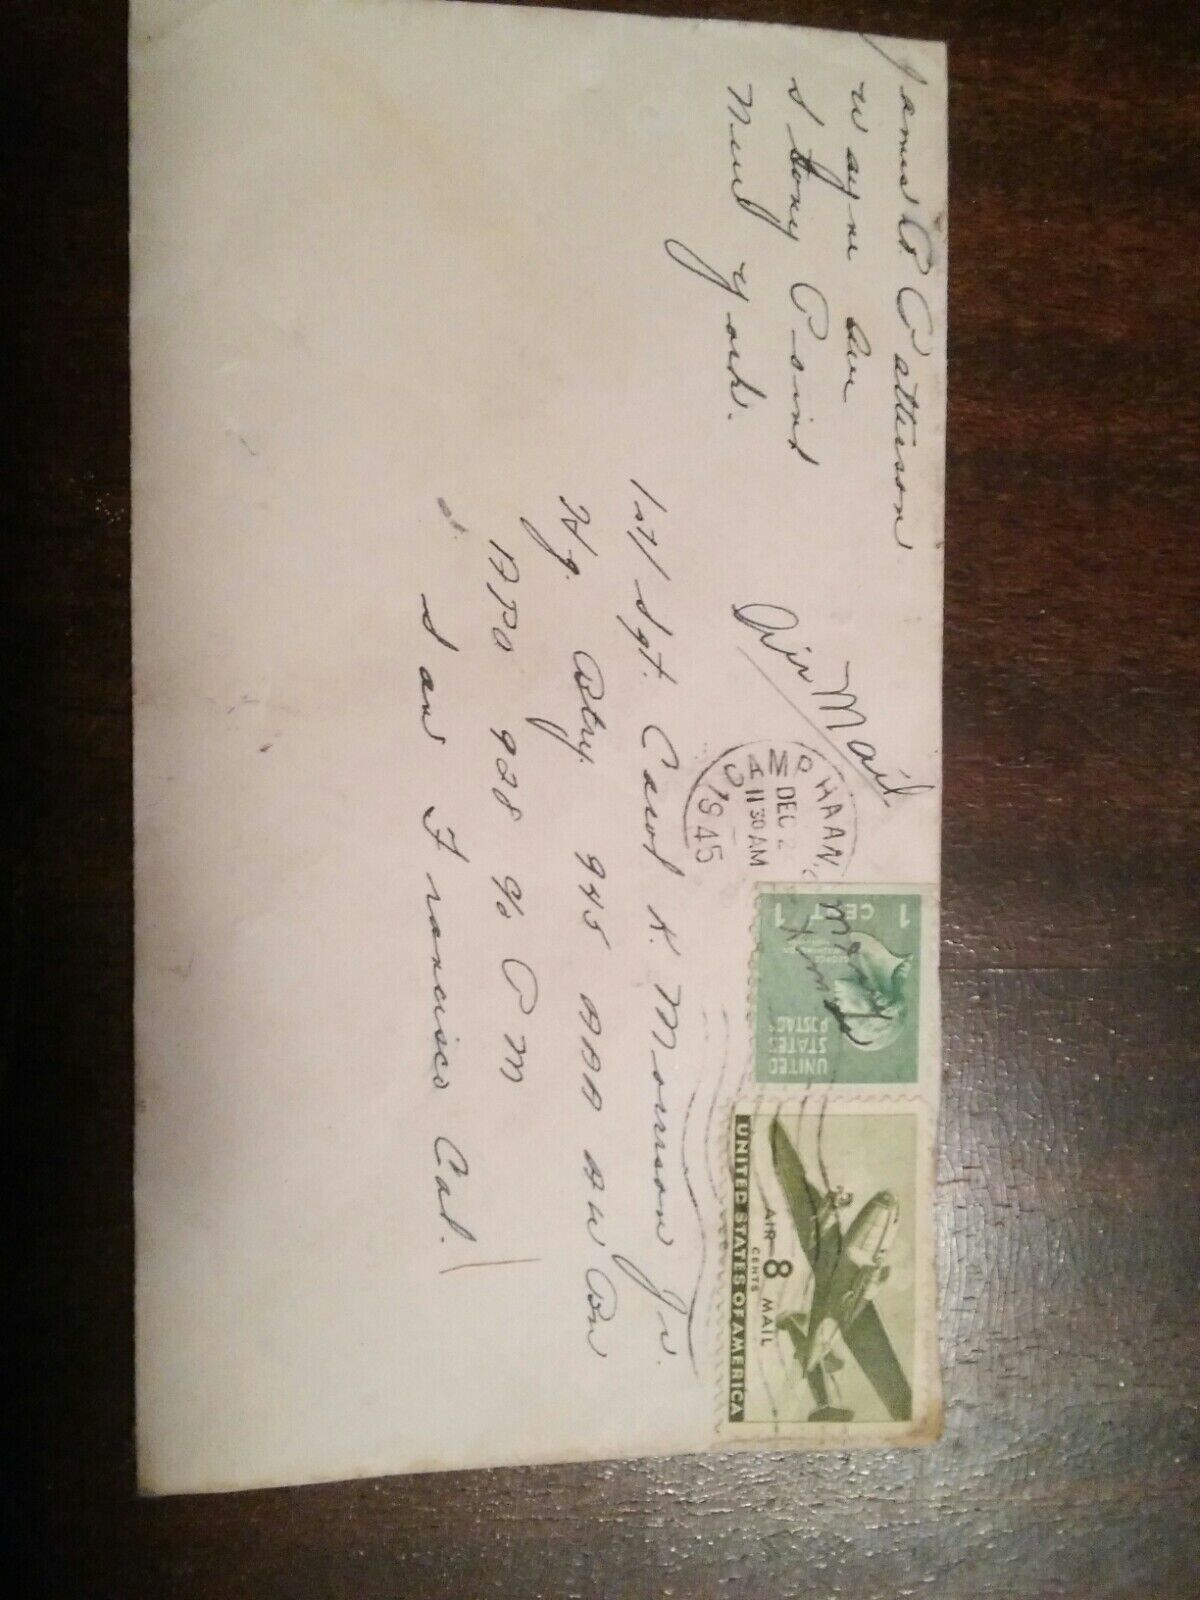 James P. Patterson
Wayne Ave
Stony Point
New York.
Air Mail
CAMP HAAN
DEC 2
11 30 AM
1945
1 CENT 1
UNITED
STATES
POSTAGE
Merry
Xmas
AIR MAIL
8
CENTS
UNITED STATES OF AMERICA
1st/Sgt. Carol K. Morrison Jr.
Hq. Btry. 945 AAA AW Bn
APO 928 % P M
San Francisco Cal.